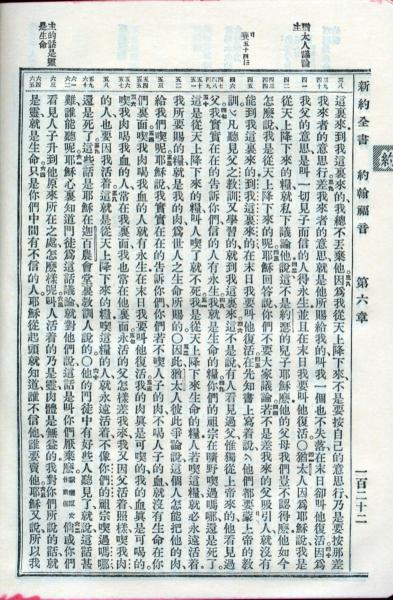 新約全書 約翰福音 第六章 一百二十二
猶太人議論主
這裏來到我這裏來的我總不丟棄他因爲我從天上降下來不是要按自己的意思行乃是要按那差
我來者的意思行差我來者的意思就是他所賜給我的叫我一個也不失落在末日卻叫他復活因爲
我父的意思是叫一切見子而信的人得永生並且在末日我要叫他復活〇猶太人因爲耶穌說我是
從天上降下來的糧就私下議論他說這不是約瑟的兒子耶穌麽他的父母我們豈不認得麽他如今
怎麽說我是從天上降下來的呢耶穌回答說你們不要大家議論若不是差我來的父吸引人就沒有
能到我這裏來的到我這裏來的在末日我要叫他復活在先知書上寫着說他們都要蒙上帝的教
訓凡聽見父之教訓又學習的就到我這裏來這不是說有人看見過父惟獨從上帝來的他看見過
父我實實在在的告訴你們信的人有永生我就是生命的糧你們的祖宗在曠野喫過嗎哪還是死了
這是從天上降下來的糧叫人喫了就不死我是從天上降下來生命的糧人若喫這糧就必永遠活着
我所要賜的糧就是我的肉爲世人之生命所賜的〇因此猶太人彼此爭論說這個人怎能把他的肉
給我們喫呢耶穌說我實實在在的告訴你們你們若不喫人子的肉不喝人子的血就沒有生命在你
們裏面喫我肉喝我血的人就有永生在末日我要叫他復活我的肉眞是可喫的我的血眞是可喝的
喫我肉喝我血的人常在我裏面我也常在他裏面永活的父怎樣差我來我又因父活着照樣喫我肉
的人也要因我活着這就是從天上降下來的糧喫這糧的人就永遠活着不像你們的祖宗喫過嗎哪
還是死了這些話是耶穌在迦百農會堂裏教訓人說的〇他的門徒中有好些人聽見了就說這話甚
難誰能聽呢耶穌心裏知道門徒爲這話議論就對他們說這話是叫你們厭棄麽倘或你們
看見人子升到他原來所在之處怎麽樣呢叫人活着的乃是靈肉體是無益的我對你們所說的話就
是靈就是生命只是你們中間有不信的人耶穌從起頭就知道誰不信他誰要賣他耶穌又說所以我
主的話是靈是生命